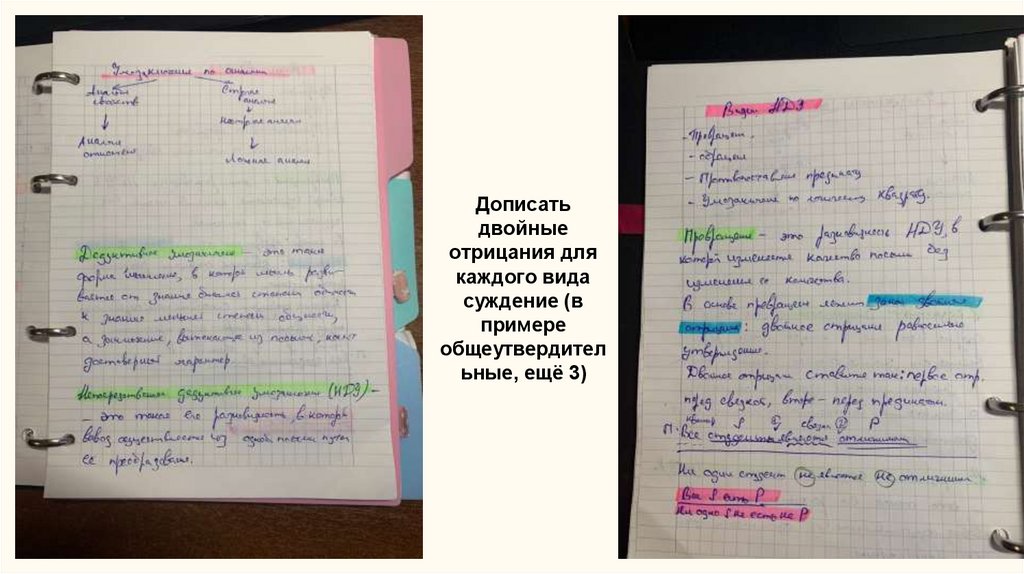 Умозаключения по аналогии
Аналогия
свойств
Строгая
аналогия
Нестрогая аналогия
Аналогия
отношений
Ложная аналогия
Дедуктивное умозаключение – это такая
форма мышления, в которой мысль разви-
вается от знания большей степени общности
к знанию меньшей степени общности,
а заключение, вытекающее из посылок, носит
достоверный характер.
Непосредственное дедуктивное умозаключение (НДУ) –
– это такая его разновидность, в которой
вывод осуществляется из одной посылки путём
её преобразования.
Дописать
двойные
отрицания для
каждого вида
суждение (в
примере
общеутвердител
ьные, ещё 3)
Виды НДУ
- Превращение.
- обращение
- Противопоставление предикату
- Умозаключение по логическому квадрату.
Превращение – это разновидность НДУ, в
которой изменяется качество посылки без
изменения её количества.
В основе превращения лежит закон двойного
отрицания: двойное отрицание равносильно
утверждению.
Двойное отрицание ставится так: первое отр.
перед связкой, второе – перед предикатом.
S связка P
П: Все студенты являются отличниками
Ни один студент не является не отличником
Все S есть P
Ни одно S не есть не P